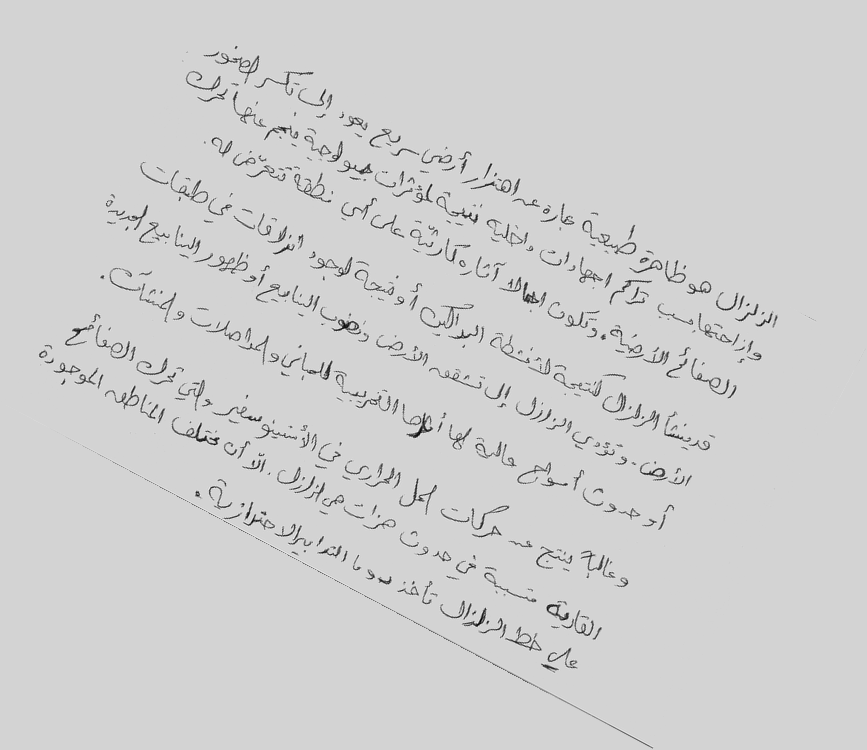 الزلزال هو ظاهرة طبيعية عبارة عن اهتزاز أرضي سريع يعود إلى تكسر الصخور
وإزاحتها بسبب تراكم اجهادات داخلية نتيجة لمؤثرات جيولوجية ينجم عنها تحرك
الصفائح الأرضية. وتكون اجمالا آثاره كارثية على أي نطقة تتعرض له.
قد ينشأ الزلزال كنتيجة لأنشطة البراكين أو نتيجة لوجود انزلاقات في طبقات
الأرض. وتؤدي الزلازل إلى تشقق الأرض ونضوب الينابيع أو ظهور الينابيع الجديدة
أو حدوث أمواج عالية لها أثارها التخريبية للمباني والمواصلات والمنشآت.
وغالبا ينتج عن حركات الحمل الحراري في الأسينوسفير والتي تحرك الصفائح
القارية متسببة في حدوث هزات هي الزلازل. الّا أن مختلف المناطق الموجودة
على خط الزلزال تأخذ دوما التدابير الاحترازية.